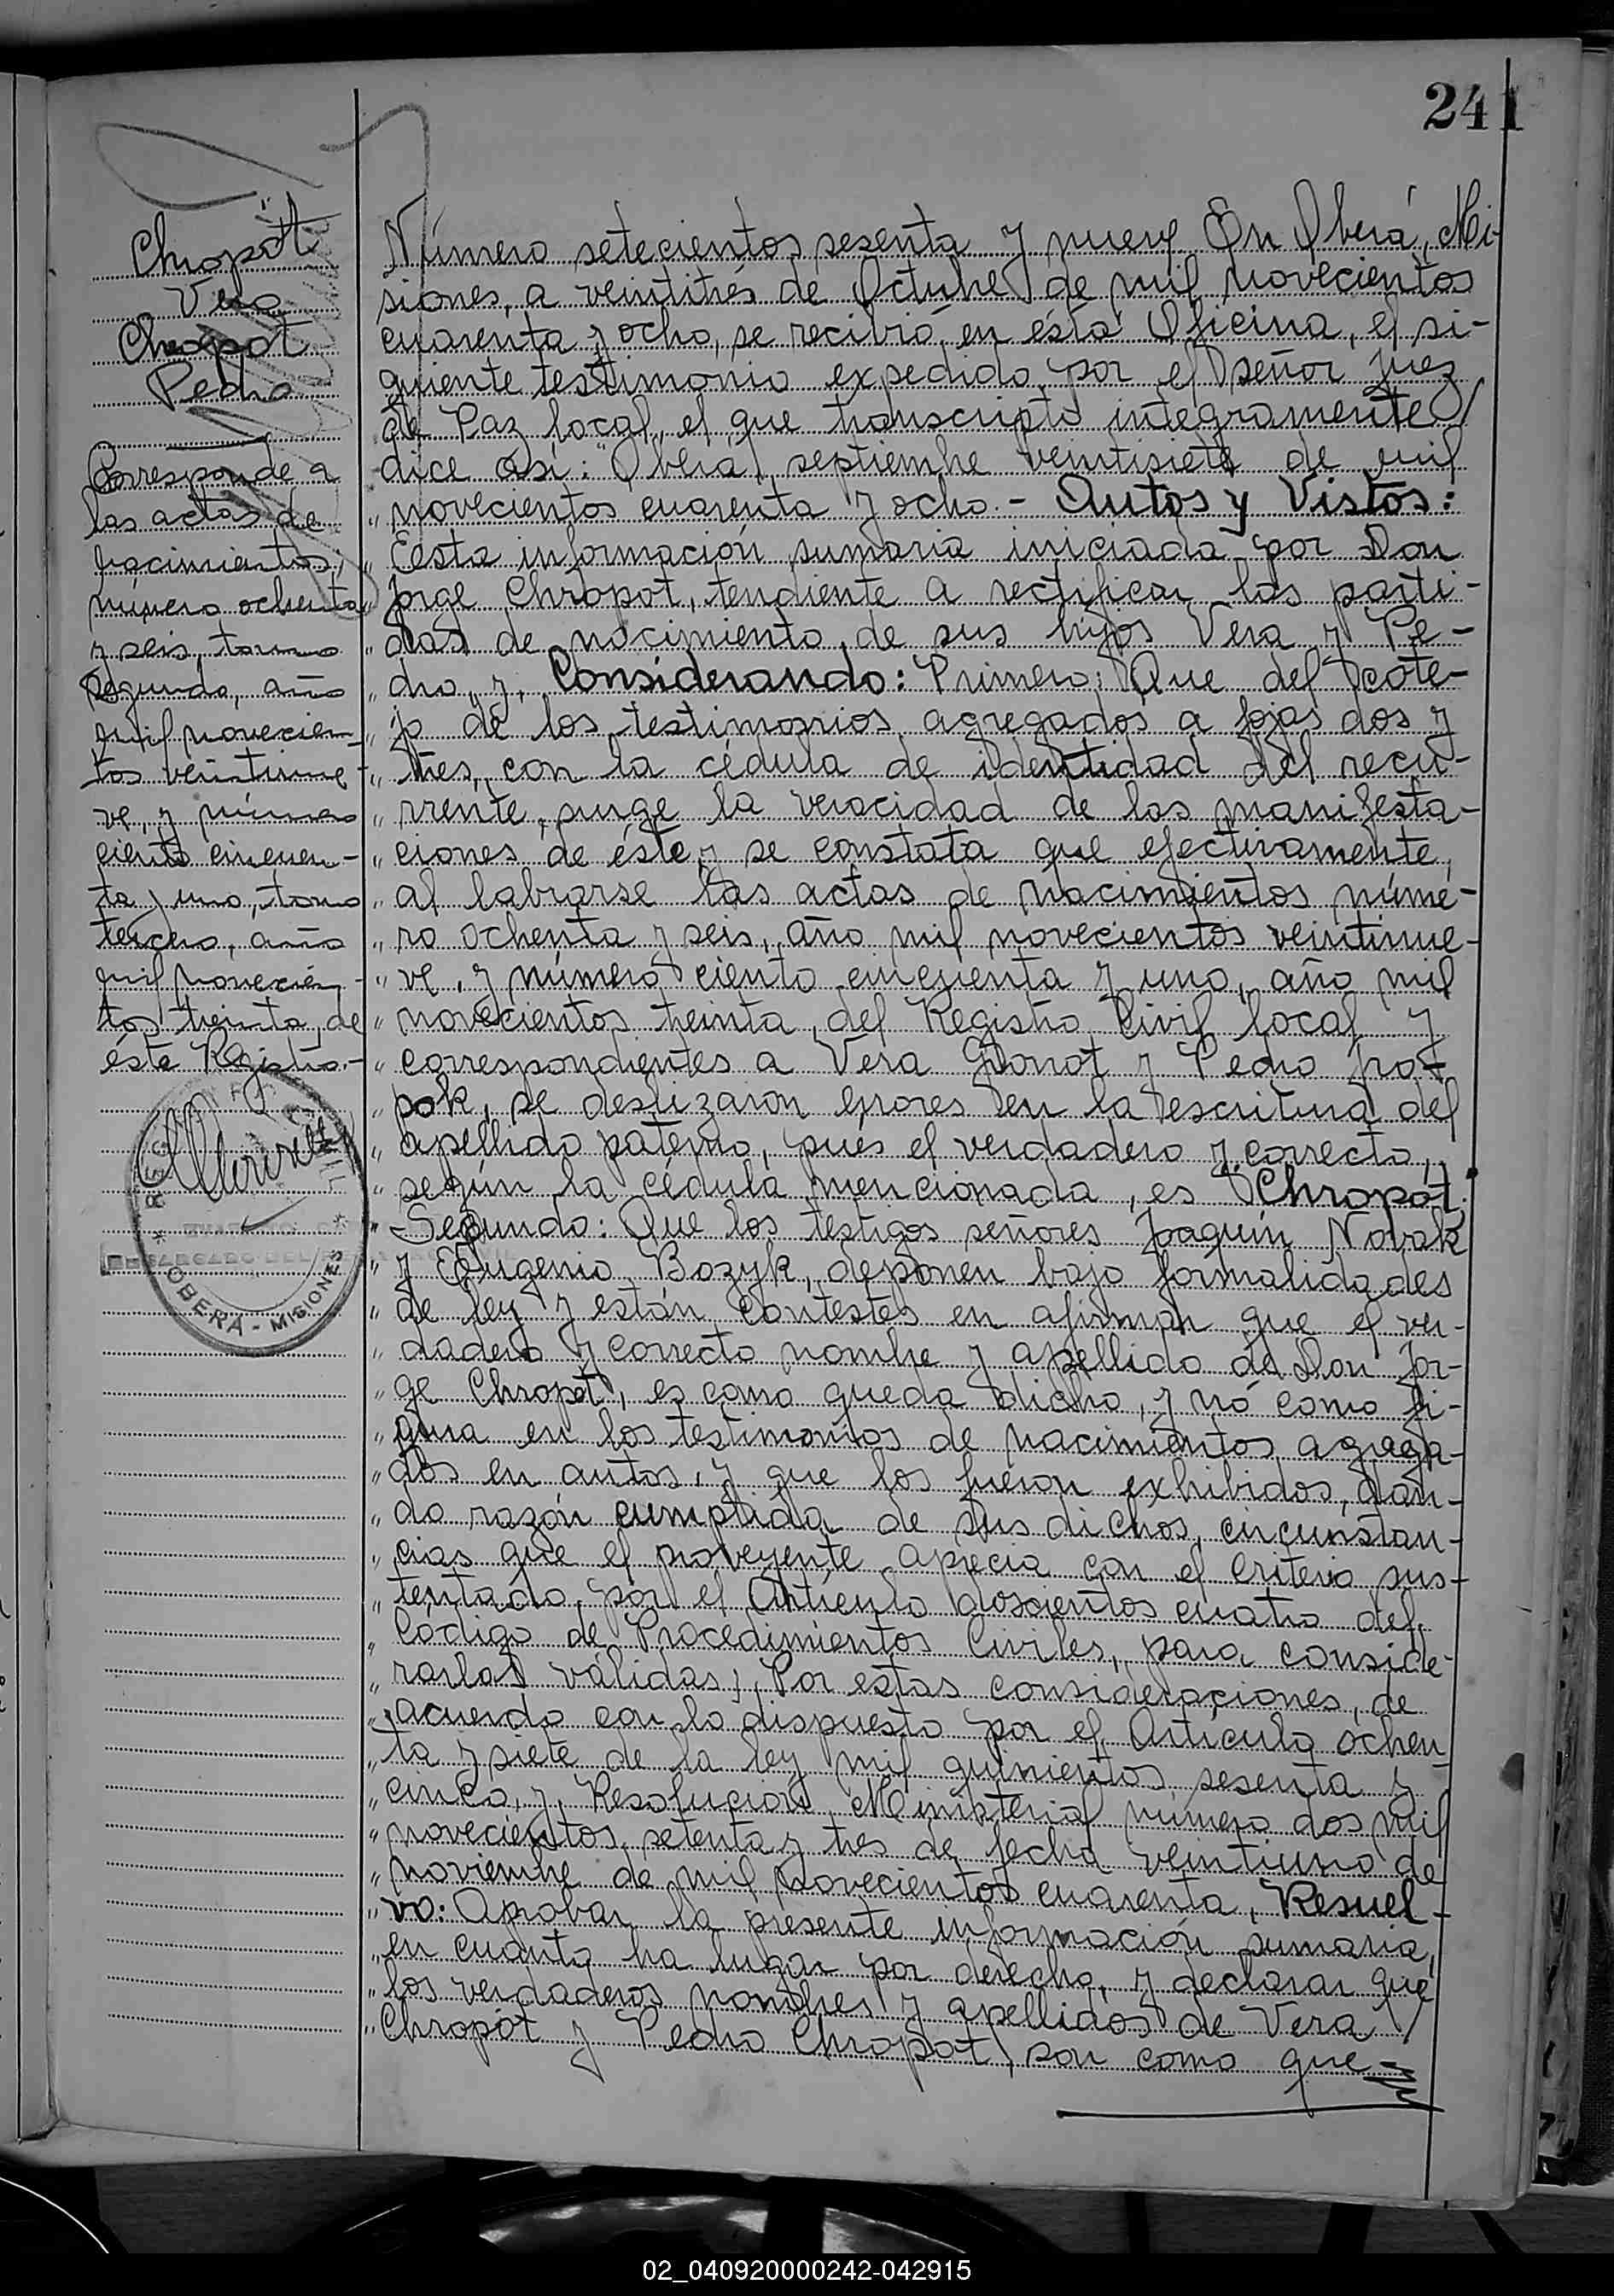 241
Chropot
Vera
Chropot
Pedro
Corresponde a
las actas de
nacimientos,
número ochenta
y seis, tomo
segundo, año
mil novecien-
tos veintinue-
ve, y número
ciento cincuen-
ta y uno, tomo
tercero, año
mil novecien-
tos treinta, de
éste Registro.-
OBERÁ - MISIONES
Número setecientos sesenta y nueve En Oberá, Mi-
siones, a veintitrés de Octubre de mil novecientos
cuarenta y ocho, se recibió en ésta Oficina, el si-
guiente testimonio expedido por el señor Juez
de Paz local, el que transcripto integramente /
dice así: "Oberá, septiembre veintisiete de mil
" novecientos cuarenta y ocho.- Autos y Vistos:
" Esta información sumaria iniciada por Don
" Jorge Chropot, tendiente a rectificar las parti-
" das de nacimiento de sus hijos Vera y Pe-
" dro, y, Considerando: Primero: Que del cote-
" jo de los testimonios agregados a fojas dos y
" tres, con la cédula de identidad del recu-
" rrente, surge la veracidad de las manifesta-
" ciones de éste, y se constata que efectivamente,
" al labrarse las actas de nacimientos núme-
" ro ochenta y seis, año mil novecientos veintinue-
" ve, y número ciento cincuenta y uno, año mil
" novecientos treinta, del Registro Civil local y
" correspondientes a Vera y Pedro
" pok, se deslizaron errores en la escritura del
" apellido paterno, pués el verdadero y correcto,
" según la cédula mencionada, es Chropot.
" Segundo: Que los testigos señores Joaquín Novak
" y Eugenio Bozyk, deponen bajo formalidades
" de ley y están contestes en afirmar que el ver-
" dadero y correcto nombre y apellido de Don Jor-
" ge Chropot, es como queda dicho, y nó como fi-
" gura en los testimonios de nacimientos agrega-
" dos en autos, y que los fueron exhibidos, dan-
" do razón cumplida de sus dichos, circunstan-
" cias que el proveyente aprecia con el criterio sus-
" tentado por el Artículo doscientos cuatro del
" Código de Procedimientos Civiles, para conside-
" rarlas válidas; Por estas consideraciones, de
" acuerdo con lo dispuesto por el Artículo ochen
" ta y siete de la ley mil quinientos sesenta y
" cinco, y Resolución Ministerial número dos mil
" novecientos setenta y tres de fecha veintiuno de
" noviembre de mil novecientos cuarenta, Resuel-
" vo: Aprobar la presente información sumaria,
" en cuanto ha lugar por derecho, y declarar que
" los verdaderos nombres y apellidos de Vera /
" Chropot y Pedro Chropot, son como que-
02_040920000242-042915